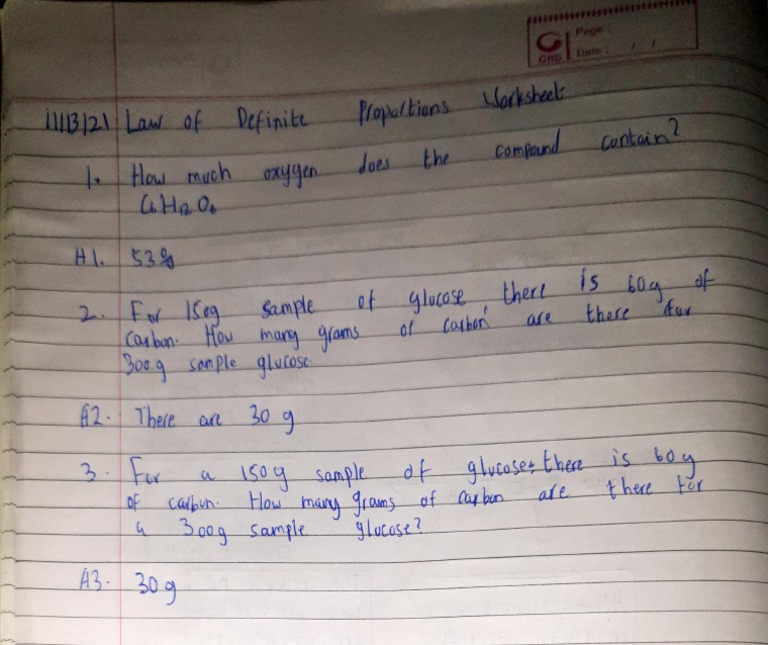 Page :
Date : / /
GRG
11/13/21 Law of Definite Proportions Worksheet
1. How much oxygen does the compound contain?
C6H12O6
A1. 53%
2. For 150g sample of glucose, there is 60g of
carbon. How many grams of carbon are there for
300g sample glucose.
A2. There are 30 g
3. For a 150g sample of glucose, there is 60g
of carbon. How many grams of carbon are there for
a 300g sample glucose?
A3. 30g